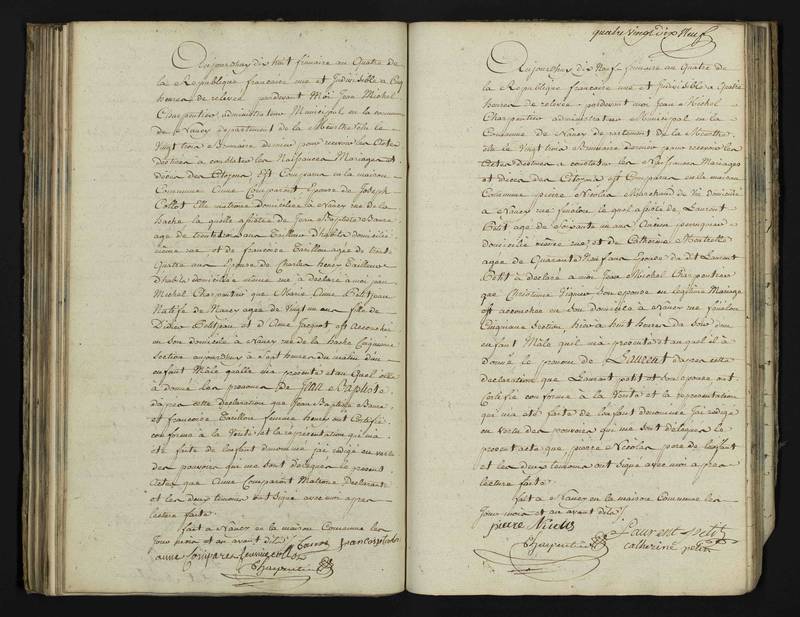 Aujourdhuy dix huit frimaire an Quatre de
la Republique francaise une et Indivisible a Cinq
heures de relevée pardevant Moi Jean Michel
Charpentier administrateur Municipal en la commune
de Nancy departement de la Meurthe élu le
Vingt trois Brumaire dernier pour recevoir les Actes
Destinés a constater les Naissances Mariages et
Décès des Citoyens Est Comparue en la maison
Commune Anne Comparant Epouse de Joseph
Collot Elle matrone domiciliée à Nancy rue de la
hache la quelle assistée de Jean Baptiste
age de trente ans Tailleur D'habits domicilié
même rue et de francoise Tarillon agée de trente
Quatre ans Epouse de Charles henry Tailleur
D'habits domiciliée même rue a déclaré a moi Jean
Michel Charpentier que Marie Anne Petitjean
Native de Nancy agée de Vingt un ans fille de
Didier Petitjean et d'Anne Jacquot est accouchée
en son domicile à Nancy rue de la hache Cinquieme
Section aujourdhuy à Sept heures du matin d'un
enfant Mâle quelle m'a presenté et au Quel elle
à donné les prenoms de Jean Baptiste
D'apres cette Declaration que Jean Baptiste
et francoise Tarillon femme henry ont Certifié
conforme à la Verité et la représentation qui m'a
été faite de l'enfant denommé j'ai rédigé en vertu
des pouvoirs qui me sont délégués le present
Acte que Anne Comparant Matrone Declarante
et les deux temoins ont signé avec moi apres
lecture faite
fait à Nancy en la maison Commune les
Jour mois et an avant dits
anne Comparant francoise
Charpentier
quatre Vingt Dix Neuf
Aujourdhuy dix Neuf frimaire an Quatre de
la Republique francaise une et Indivisible a Quatre
heures de relevée pardevant moi Jean Michel
Charpentier administrateur Municipal en la
Commune de Nancy departement de la Meurthe
élu le Vingt trois Brumaire dernier pour recevoir les
Actes Destinés a constater les Naissances Mariages
et décès des Citoyens est Comparu en la maison
Commune pierre Nicolas Marchand de Vin domicilié
a Nancy rue fénelon le quel assisté de Laurent
Petit agé de Soixante un ans Ancien perruquier
domicilié même rue et de Catherine
agée de Quarante Neuf ans Epouse du dit Laurent
Petit à déclaré a moi Jean Michel Charpentier
que Christine son epouse en legitime Mariage
est accouchée en son domicile à Nancy rue fénelon
Cinquieme Section hier a huit heures du Soir d'un
enfant Mâle quil m'a presenté et au quel il à
Donné le prenom de Laurent d'apres cette
déclaration que Laurent petit et Son epouse ont
Certifié conforme à la Verité et la representation
qui m'a été faite de l'enfant denommé j'ai rédigé
en vertu des pouvoirs qui me sont delegués le
present acte que pierre Nicolas pere de l'enfant
et les deux temoins ont signé avec moi apres
lecture faite
fait à Nancy en la maison Commune les
Jour mois et an avant dits
pierre Nicolas Laurent petit
Charpentier catherine